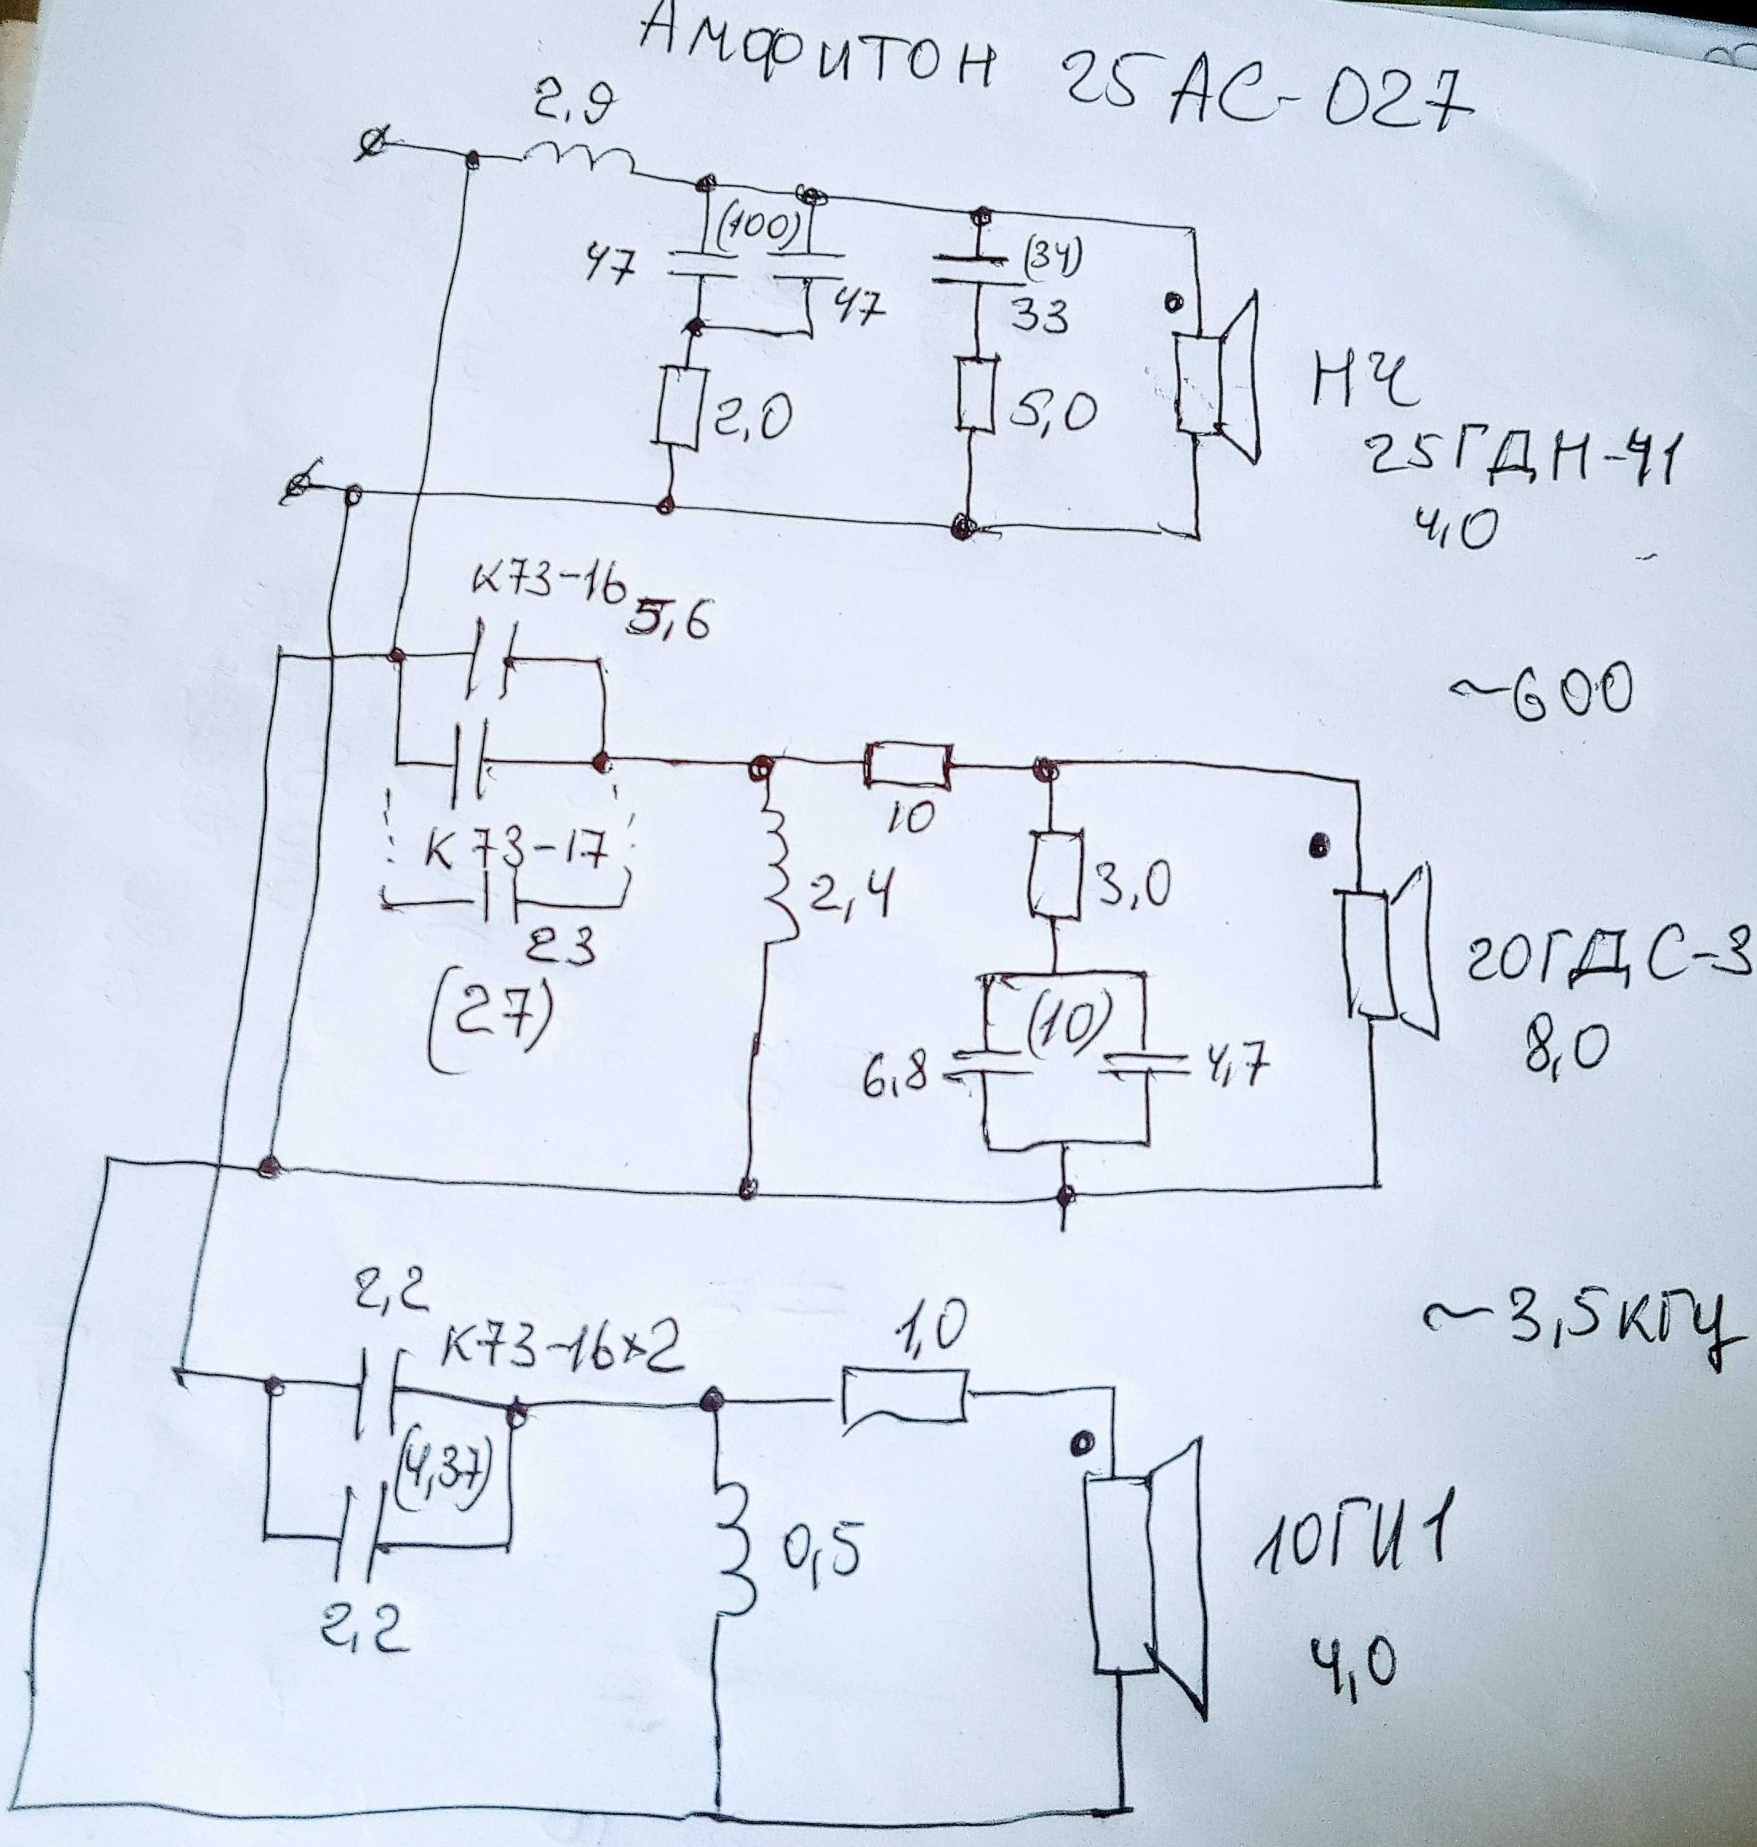 Амфитон 25АС-027
2,9
(100)
47
47
(34)
33
2,0
5,0
НЧ
25ГДН-41
4,0
К73-16
5,6
~600
10
К73-17
23
(27)
2,4
3,0
(10)
6,8
4,7
20ГДС-3
8,0
2,2
К73-16×2
(4,37)
2,2
1,0
~3,5кГц
0,5
10ГИ1
4,0